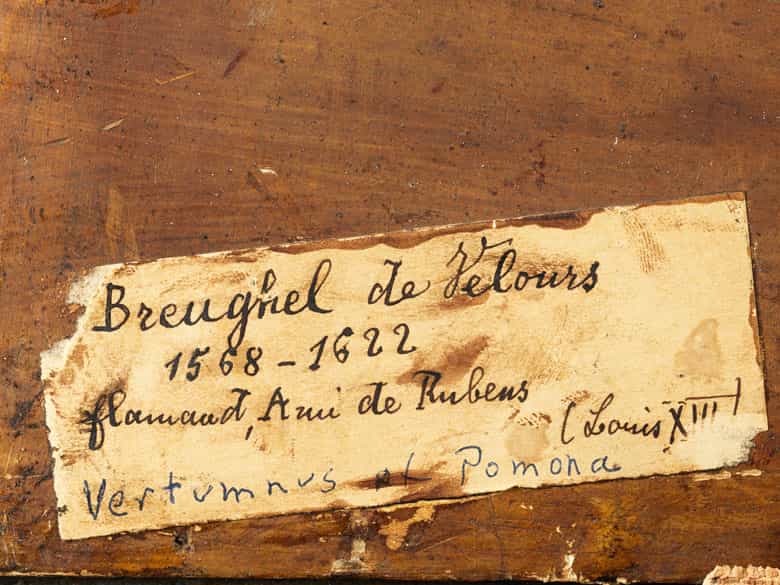 Breughel de Velours
1568-1622
flamand, Ami de Rubens
(Louis XIII)
Vertumnus et Pomona